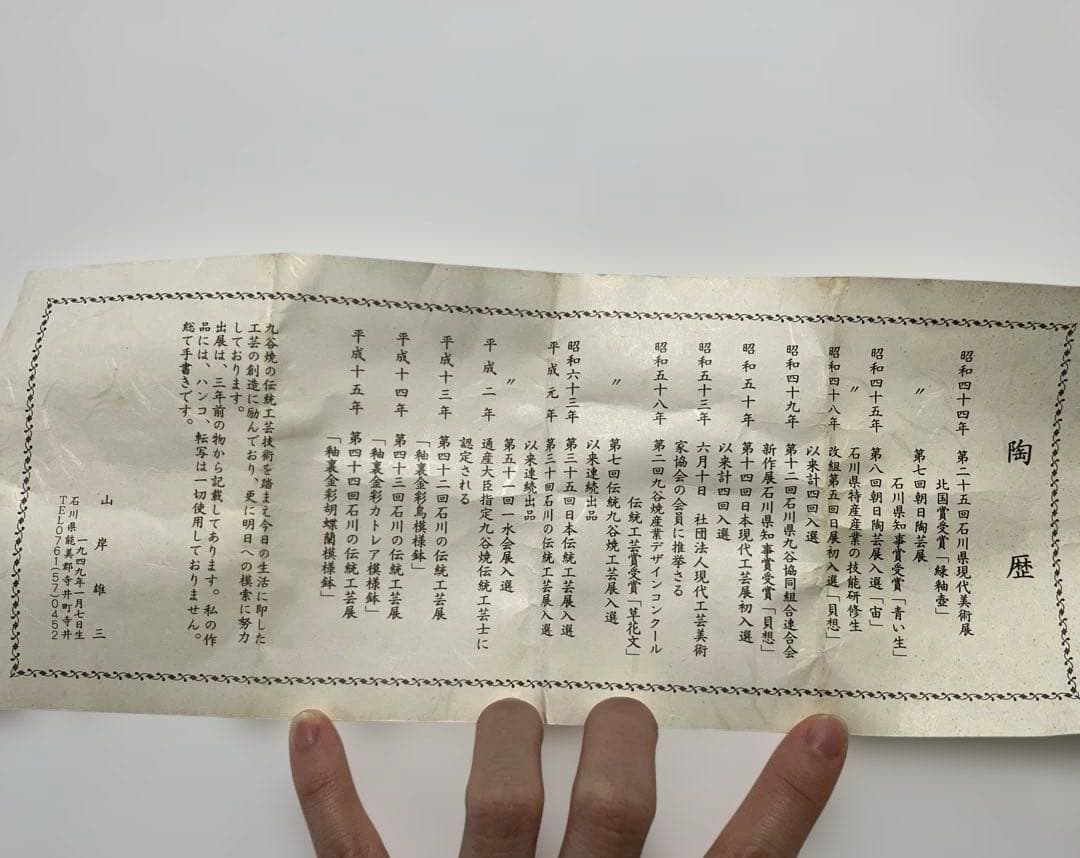 陶歴
昭和四十四年 第二十五回石川県現代美術展
北国賞受賞「緑釉壺」
〃 第七回朝日陶芸展
石川県知事賞受賞「青い生」
昭和四十五年 第八回朝日陶芸展入選「宙」
〃 石川県特産産業の技能研修生
昭和四十八年 改組第五回日展初入選「貝想」
以来計四回入選
昭和四十九年 第十二回石川県九谷協同組合連合会
新作展石川県知事賞受賞「貝想」
昭和五十年 第十四回日本現代工芸展初入選
以来計四回入選
昭和五十三年 六月十日 社団法人現代工芸美術
家協会の会員に推挙さる
昭和五十八年 第二回九谷焼産業デザインコンクール
伝統工芸賞受賞「草花文」
〃 第七回伝統九谷焼工芸展入選
以来連続出品
昭和六十三年 第三十五回日本伝統工芸展入選
平成元年 第三十回石川の伝統工芸展入選
以来連続出品
〃 第五十一回一水会展入選
平成二年 通産大臣指定九谷焼伝統工芸士に
認定される
平成十三年 第四十二回石川の伝統工芸展
「釉裏金彩鳥模様鉢」
平成十四年 第四十三回石川の伝統工芸展
「釉裏金彩カトレア模様鉢」
平成十五年 第四十四回石川の伝統工芸展
「釉裏金彩胡蝶蘭模様鉢」
九谷焼の伝統工芸技術を踏まえ今日の生活に即した
工芸の創造に励んでおり、更に明日への模索に努力
しております。
出展は、三年前の物から記載してあります。私の作
品には、ハンコ、転写は一切使用しておりません。
総て手書きです。
山岸雄三
一九四九年一月七日生
石川県能美郡寺井町寺井
TEL0761-57-0452